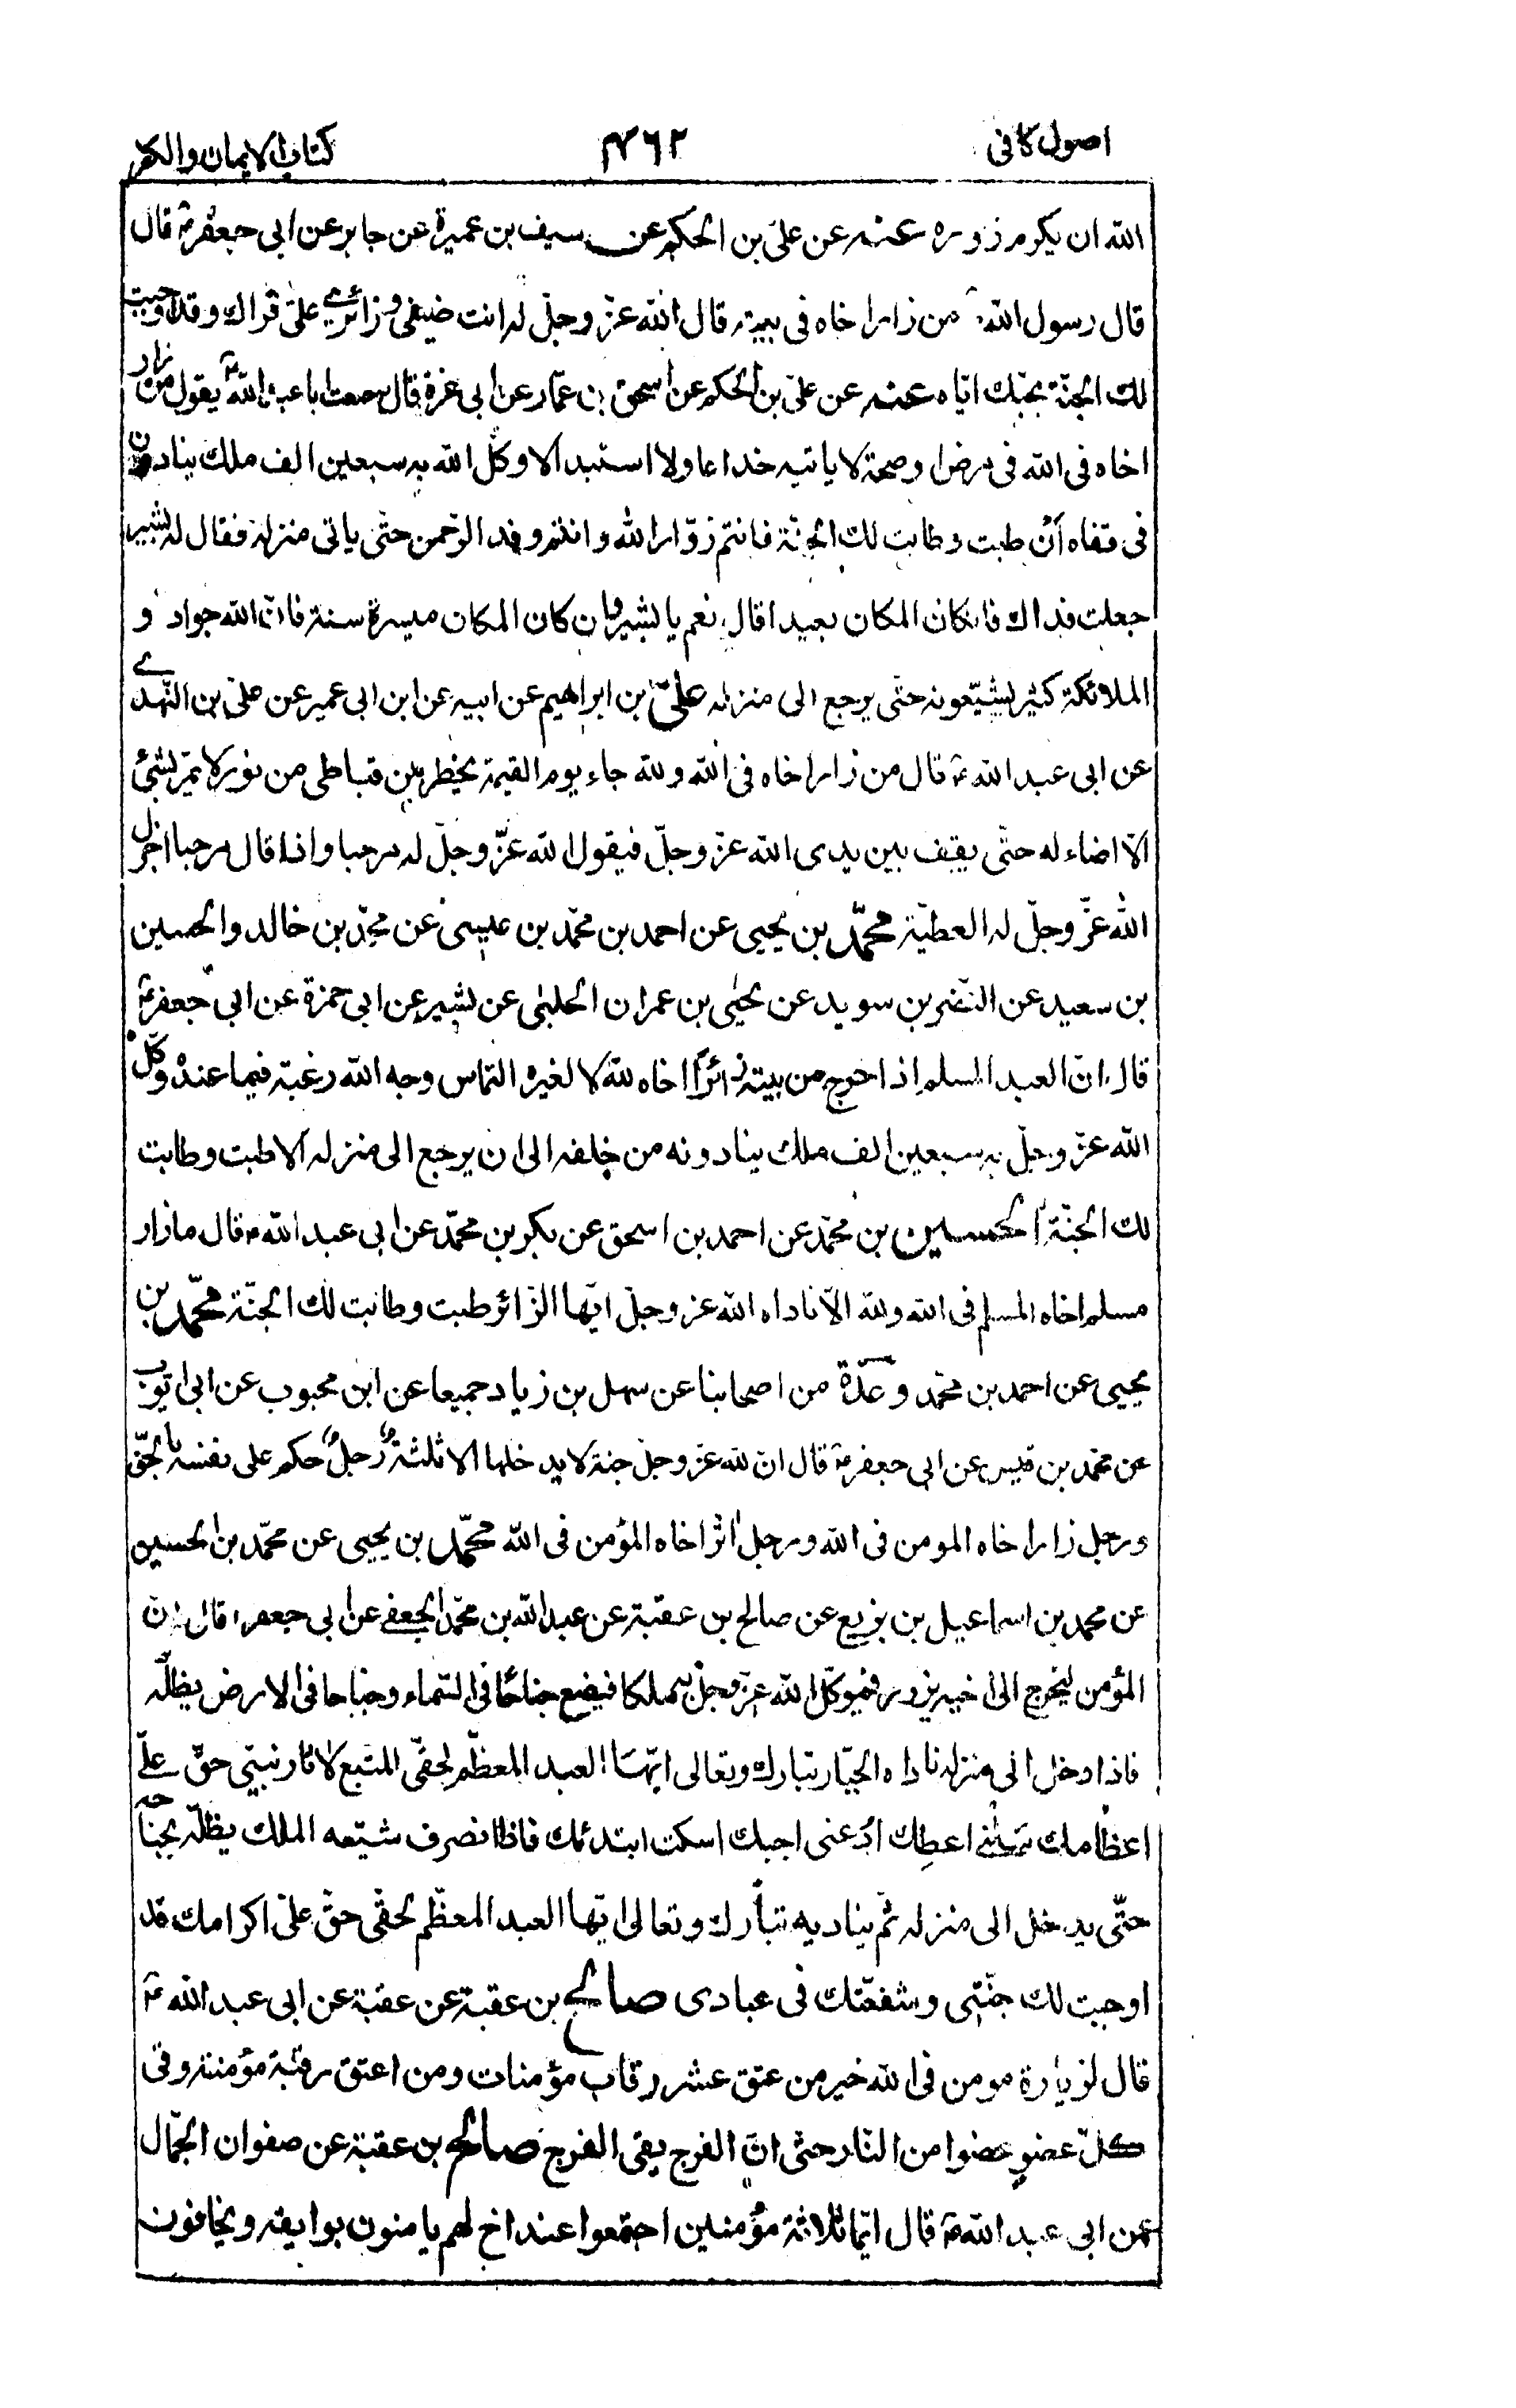 اصول كافى
٤٦٢
كتاب الايمان والكفر
الله ان يكرم زوره عنه عن على بن الحكم عن سيف بن عميرة عن جابر عن ابى جعفرؑ قال
قال رسول الله من زار اخاه فى بيته قال الله عزّ وجلّ له انت ضيفى وزائرى علىّ قراك وقد اوجبت
لك الجنّة بحبّك ايّاه عنه عن علىّ بن الحكم عن اسحق بن عمّار عن ابى غرة قال سمعت ابا عبد اللهؑ يقول من زار
اخاه فى الله فى مرض او صحة لا ياتيه خداعا ولا استبدالا وكّل الله به سبعين الف ملك ينادون
فى قفاه أن طبت وطابت لك الجنّة فانتم زوّار الله وانتم وفد الرّحمن حتّى ياتى منزله فقال له بشير
جعلت فداك فان كان المكان بعيدا قال نعم يا بشير وان كان المكان مسيرة سنة فانّ الله جواد و
الملائكة كثير يشيّعونه حتّى يرجع الى منزله علىّ بن ابراهيم عن ابيه عن ابن ابى عمير عن علىّ بن النّهدى
عن ابى عبد اللهؑ قال من زار اخاه فى الله ولله جاء يوم القيمة يخطر بين قباطى من نور لا يمرّ بشئ
الّا اضاء له حتّى يقف بين يدى الله عزّ وجلّ فيقول الله عزّ وجلّ له مرحبا واذا قال مرحبا اجزل
الله عزّ وجلّ له العطيّة محمّد بن يحيى عن احمد بن محمّد بن عيسى عن محمّد بن خالد والحسين
بن سعيد عن النّضر بن سويد عن يحيى بن عمران الحلبى عن بشير عن ابى حمزة عن ابى جعفرؑ
قال انّ العبد المسلم اذا خرج من بيته زائراً اخاه لله لا لغيره التماس وجه الله رغبة فيما عنده وكّل
الله عزّ وجلّ به سبعين الف ملك ينادونه من خلفه الى ان يرجع الى منزله الا طبت وطابت
لك الجنّة الحسين بن محمّد عن احمد بن اسحق عن بكر بن محمّد عن ابى عبد اللهؑ قال ما زار
مسلم اخاه المسلم فى الله ولله الّا ناداه الله عز وجلّ ايّها الزّائر طبت وطابت لك الجنّة محمّد بن
يحيى عن احمد بن محمّد وعدّة من اصحابنا عن سهل بن زياد جميعا عن ابن محبوب عن ابى ايّوب
عن محمد بن قيس عن ابى جعفرؑ قال انّ لله عزّ وجلّ جنة لا يدخلها الا ثلثة رجلٌ حكم على نفسه بالحقّ
ورجل زار اخاه المومن فى الله ورجل اثر اخاه المؤمن فى الله محمّد بن يحيى عن محمّد بن الحسين
عن محمد بن اسماعيل بن بزيع عن صالح بن عقبة عن عبد الله بن محمّد الجعفى عن ابى جعفر قال انّ
المؤمن ليخرج الى اخيه يزوره فيوكّل الله عزّ وجلّ به ملكا فيضع جناحا فى السّماء وجناحا فى الارض يظلّه
فاذا دخل الى منزله ناداه الجبّار تبارك وتعالى ايّها العبد المعظّم لحقّى المتبع لاثار نبيّى حقّ علىّ
اعظامك سلنى اعطك ادعنى اجبك اسكت ابتدئك فاذا انصرف شيّعه الملك يظلّه بجناحه
حتّى يدخل الى منزله ثم يناديه تبارك وتعالى ايّها العبد المعظّم لحقّى حقّ علىّ اكرامك قد
اوجبت لك جنّتى وشفعّتك فى عبادى صالح بن عقبة عن عقبة عن ابى عبد اللهؑ
قال لزيارة مومن فى الله خير من عتق عشر رقاب مؤمنات ومن اعتق رقبة مؤمنة وقى
كلّ عضوٍ عضوا من النّار حتّى انّ الفرج يقى الفرج صالح بن عقبة عن صفوان الجمّال
عن ابى عبد اللهؑ قال ايّما ثلاثة مؤمنين اجتمعوا عند اخ لهم يامنون بوايقه ويخافون